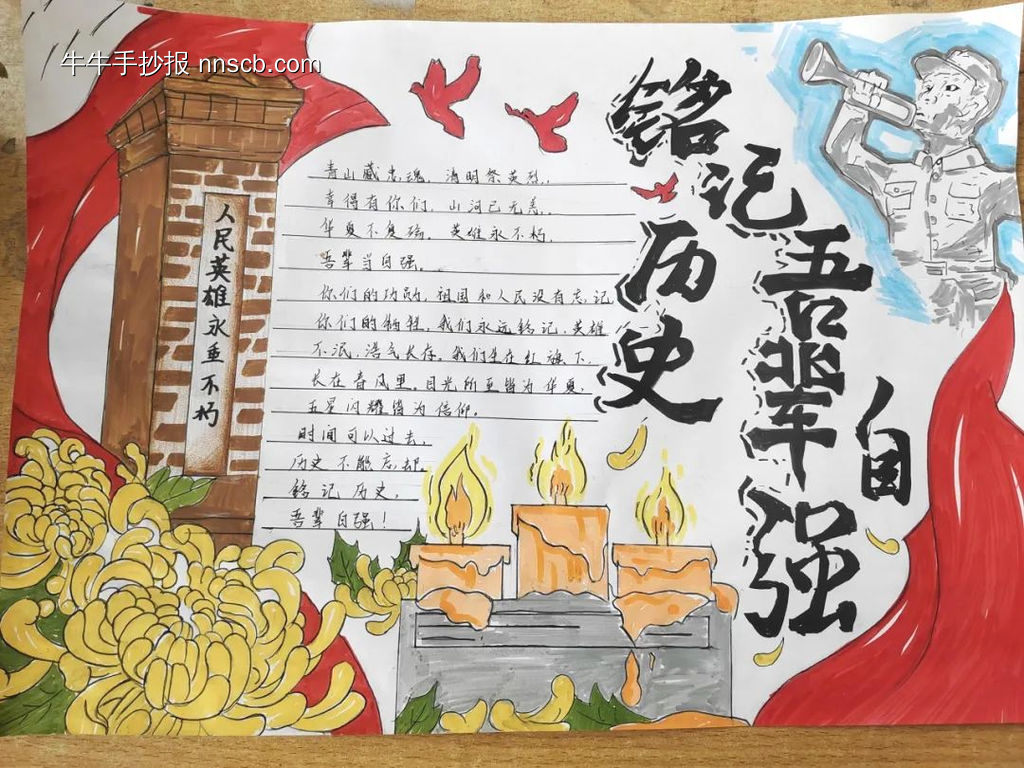 牛牛手抄报 nnscb.com
铭记历史
吾辈自强
人民英雄永垂不朽
青山藏忠魂，清明祭英烈。
幸得有你们，山河已无恙。
华夏不复殇，英雄永不朽。
吾辈当自强。
你们的功勋，祖国和人民没有忘记
你们的牺牲，我们永远铭记，英雄
不泯，浩气长存，我们生在红旗下，
长在春风里，目光所至皆为华夏，
五星闪耀皆为信仰。
时间可以过去，
历史不能忘却
铭记历史，
吾辈自强！